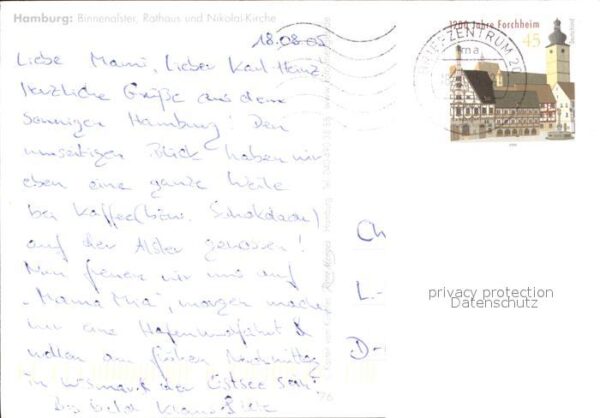 Hamburg: Binnenalster, Rathaus und Nikolai-Kirche
18.08.05
Liebe Mami, lieber Karl-Heinz,
herzliche Grüße aus dem
sonnigen Hamburg! Den
umseitigen Blick haben wir
eben eine ganze Weile
bei Kaffee (bzw. Schokolade)
auf der Alster genossen!
Nun freuen wir uns auf
"Mama Mia", morgen machen
wir eine Hafenrundfahrt &
wollen am frühen Nachmittag
in Wismar der Ostsee sein!
Bis bald Klaus &
1200 Jahre Forchheim
45
Deutschland
BRIEFZENTRUM 20
Ch
L.-
D-
privacy protection
Datenschutz
26